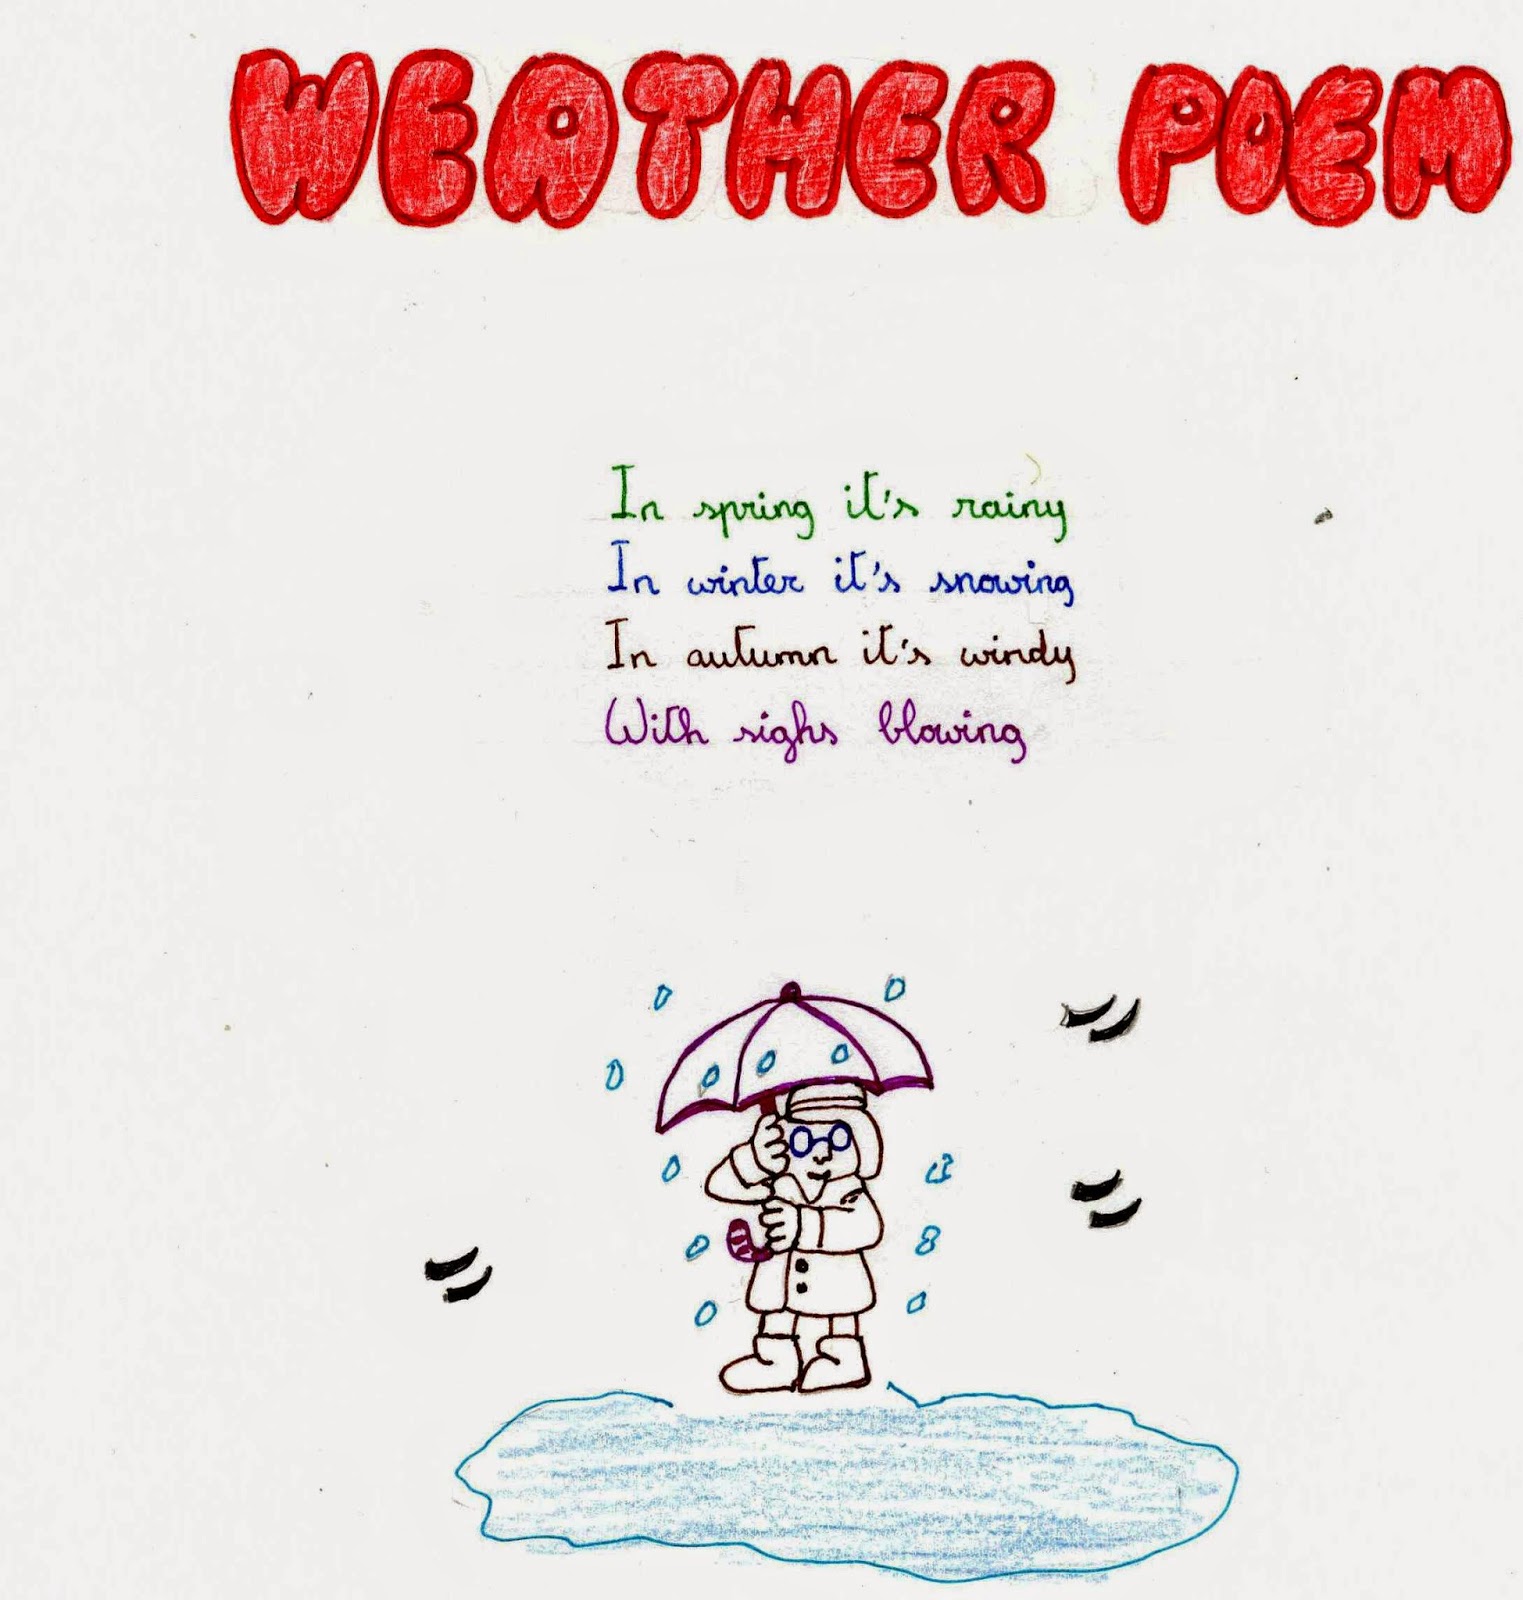 WEATHER POEM
In spring it's rainy
In winter it's snowing
In autumn it's windy
With sighs blowing